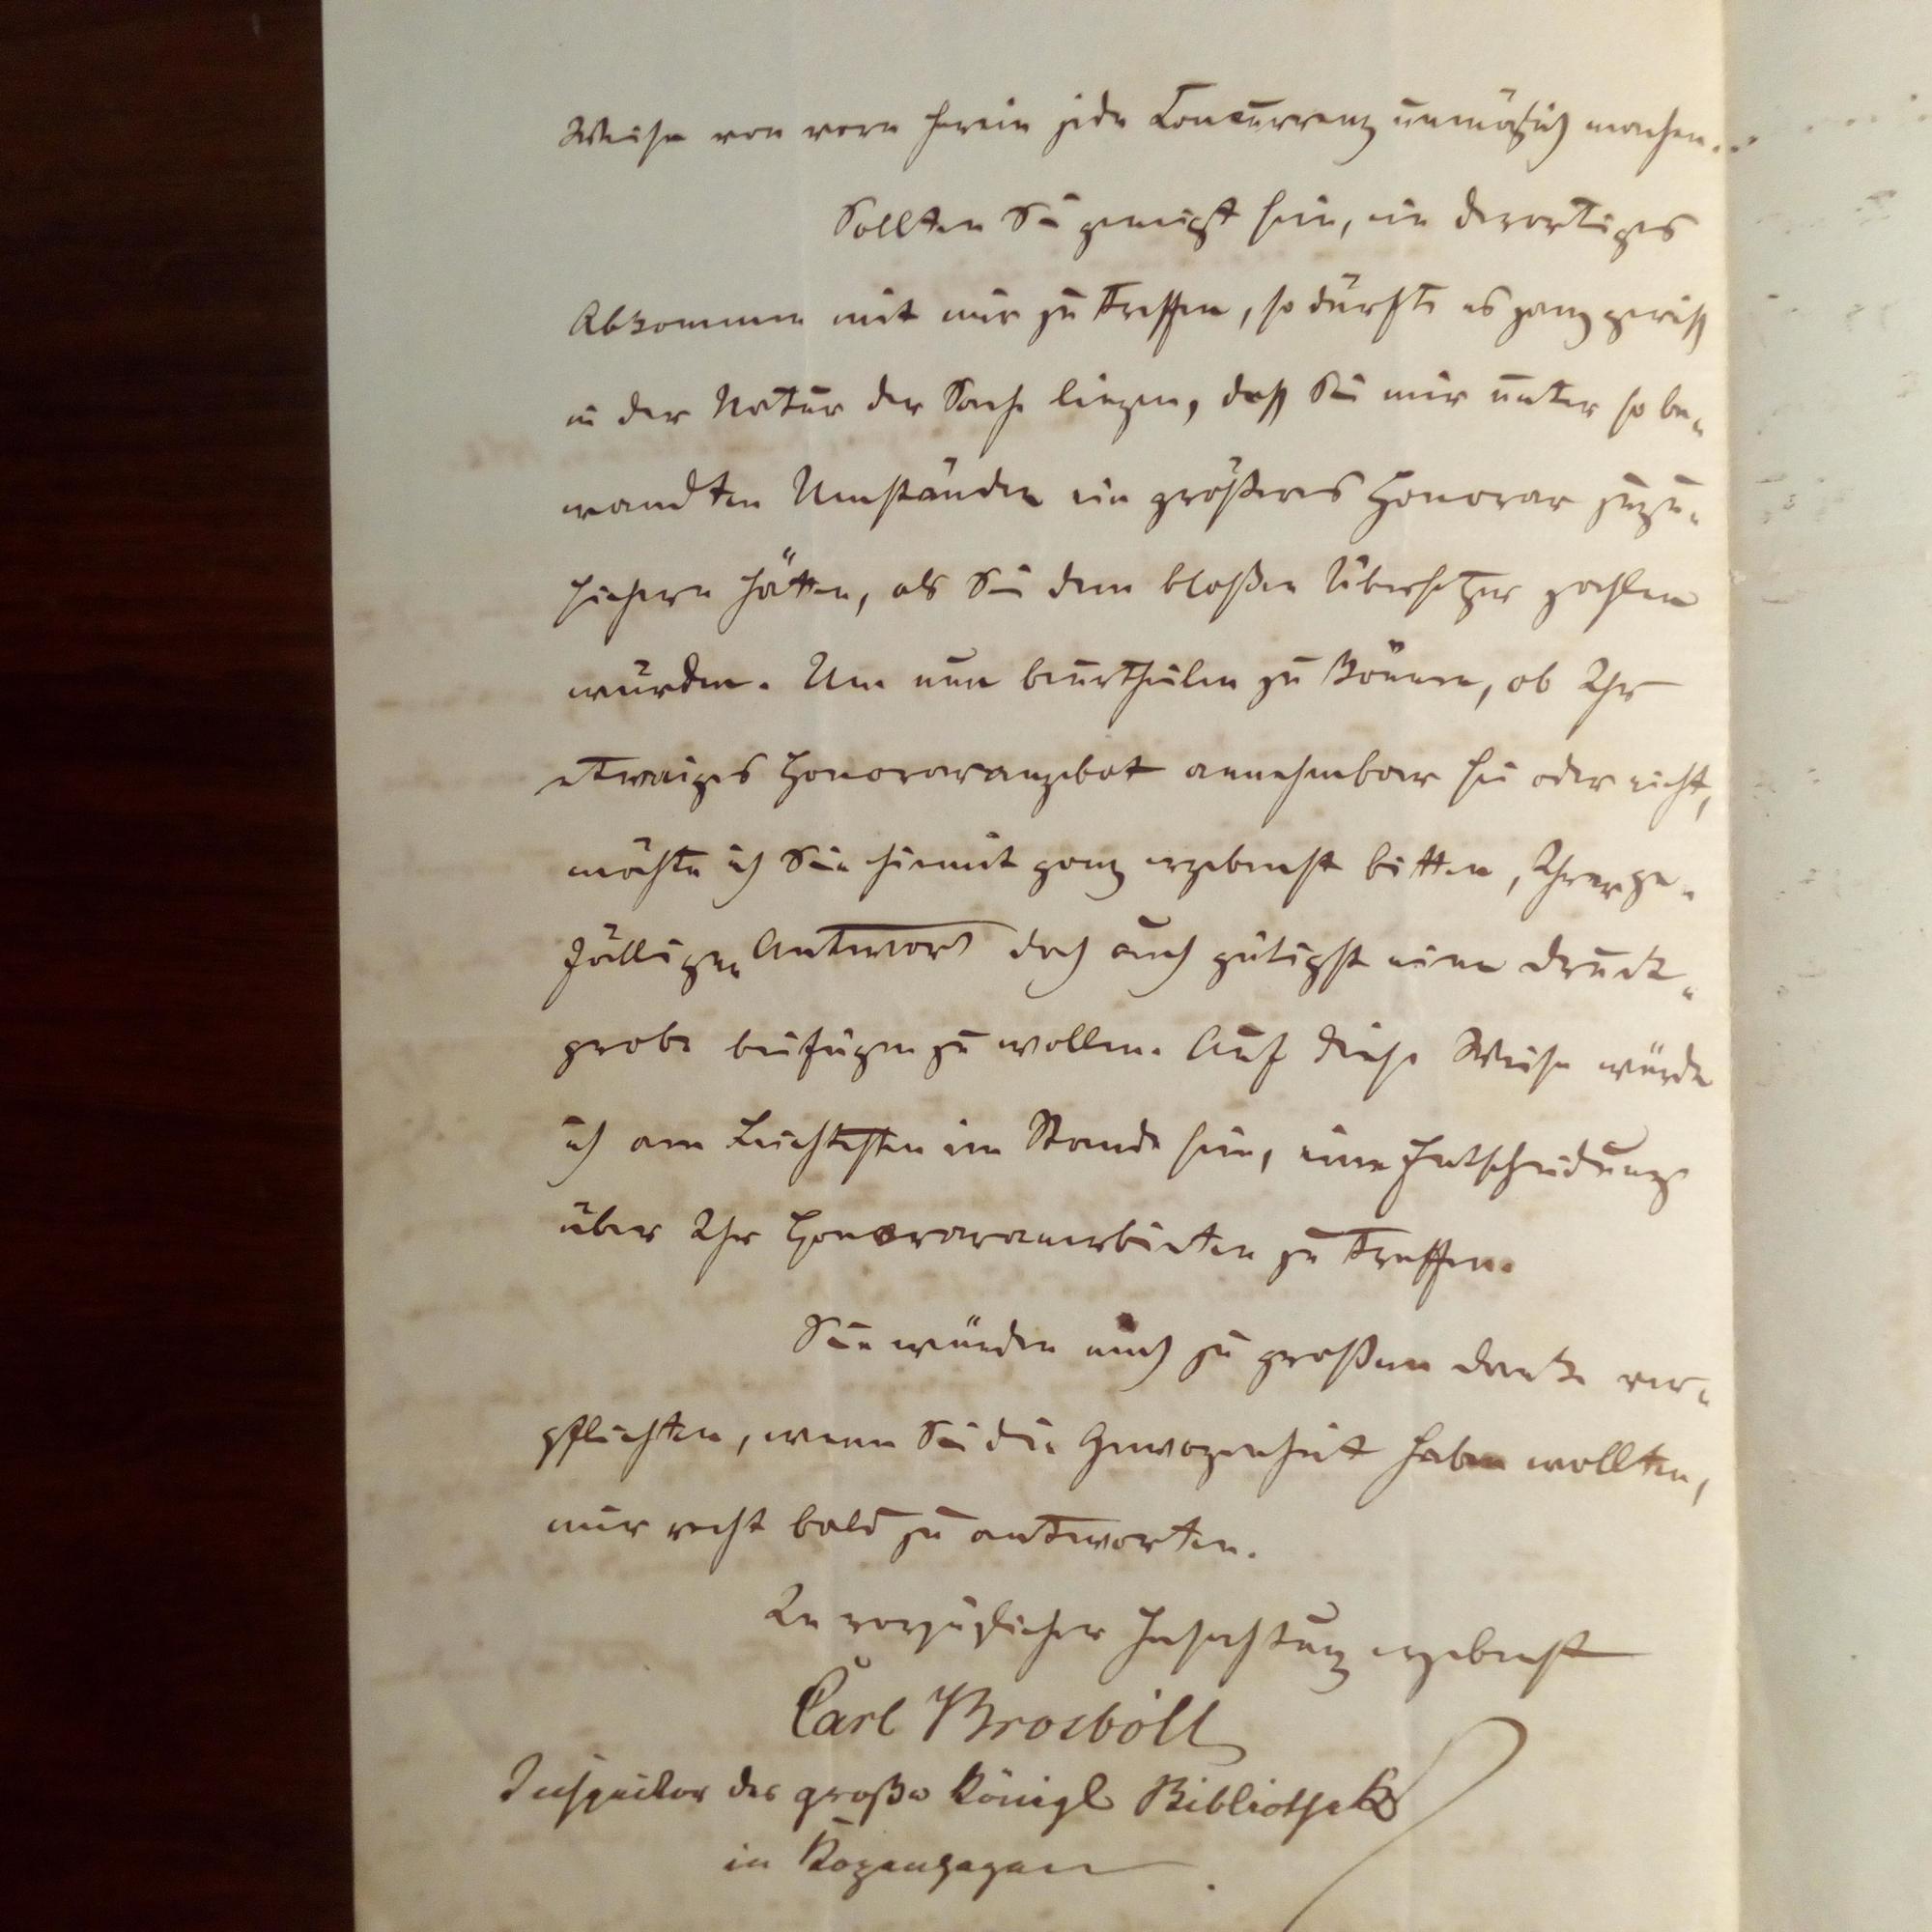 Weise von vorn herein jede Concurrenz unmöglich machen.
Sollten Sie geneigt sein, ein derartiges
Abkommen mit mir zu treffen, so dürfte es ganz gewiß
in der Natur der Sache liegen, daß Sie mir unter so be-
wandten Umständen ein größeres Honorar zuzu-
sichern hätten, als Sie dem bloßen Übersetzer zahlen
würden. Um nun beurtheilen zu können, ob Ihr
etwaiges Honorarangebot annehmbar sei oder nicht,
möchte ich Sie hiemit ganz ergebenst bitten, Ihrer ge-
fälligen Antwort doch auch gütigst eine Druck-
probe beifügen zu wollen. Auf diese Weise würde
ich am Leichtesten im Stande sein, eine Entscheidung
über Ihr Honoraranerbieten zu treffen.
Sie würden mich zu großem Danke ver-
pflichten, wenn Sie die Gewogenheit haben wollten,
mir recht bald zu antworten.
In vorzüglicher Hochachtung ergebenst
Carl Brosböll
Inspector der große Königl Bibliothek
in Kopenhagen.